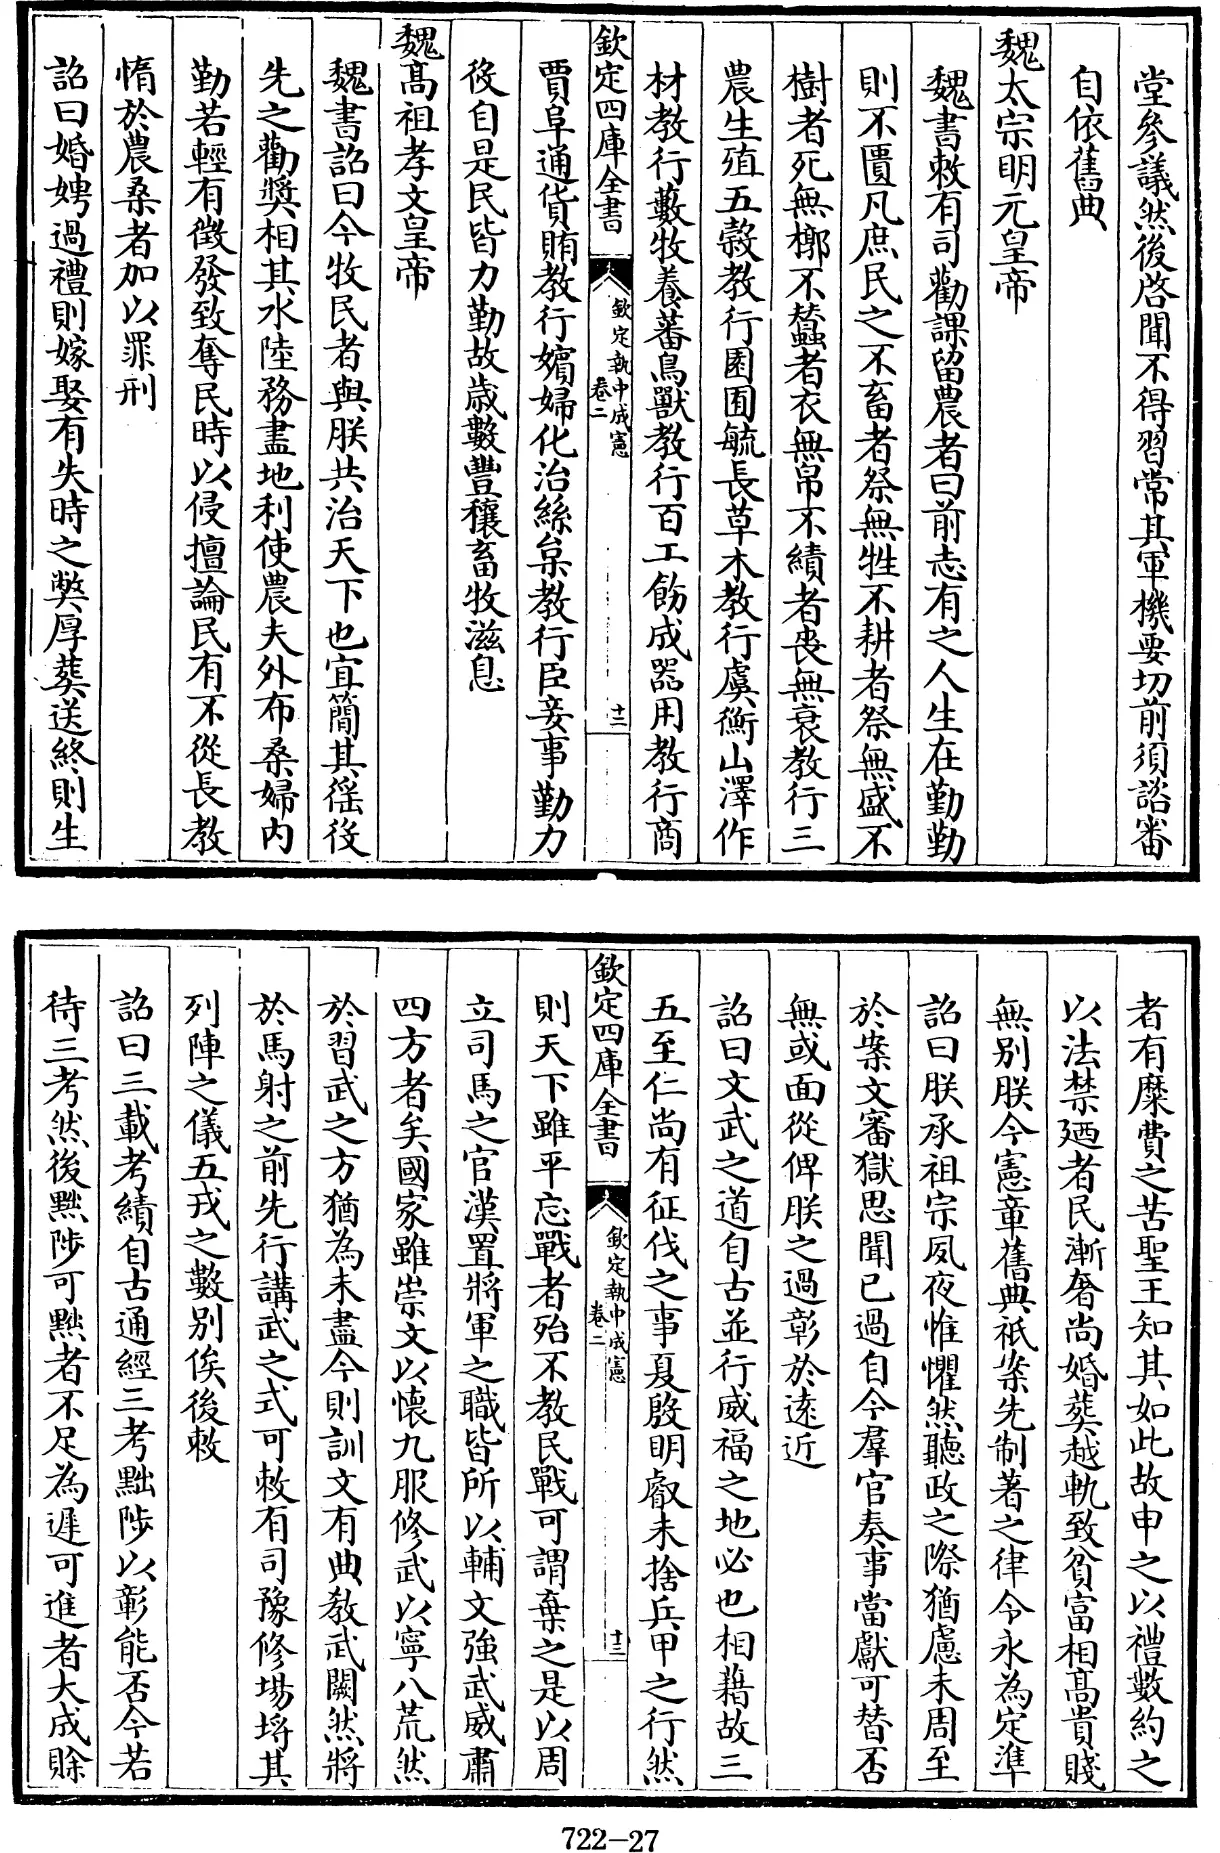 堂參議然後啓聞不得習常其軍機要切前須諮審
自依舊典
魏太宗明元皇帝
魏書敕有司勸課留農者曰前志有之人生在勤勤
則不匱凡庶民之不畜者祭無牲不耕者祭無盛不
樹者死無槨不蠶者衣無帛不績者喪無衰教行三
農生殖五穀教行園囿毓長草木教行虞衡山澤作
材教行藪牧養蕃鳥獸教行百工飭成器用教行商
欽定四庫全書
欽定執中成憲
卷二
十二
賈阜通貨賄教行嬪婦化治絲枲教行臣妾事勤力
役自是民皆力勤故歲數豐穰畜牧滋息
魏高祖孝文皇帝
魏書詔曰今牧民者與朕共治天下也宜簡其徭役
先之勸奬相其水陸務盡地利使農夫外布桑婦內
勤若輕有徵發致奪民時以侵擅論民有不從長教
惰於農桑者加以罪刑
詔曰婚娉過禮則嫁娶有失時之弊厚葬送終則生
者有糜費之苦聖王知其如此故申之以禮數約之
以法禁廼者民漸奢尚婚葬越軌致貧富相高貴賤
無別朕今憲章舊典祗案先制著之律令永為定準
詔曰朕承祖宗夙夜惟懼然聽政之際猶慮未周至
於案文審獄思聞已過自今羣官奏事當獻可替否
無或面從俾朕之過彰於遠近
詔曰文武之道自古並行威福之地必也相藉故三
五至仁尚有征伐之事夏殷明叡未捨兵甲之行然
欽定四庫全書
欽定執中成憲
卷二
十三
則天下雖平忘戰者殆不教民戰可謂棄之是以周
立司馬之官漢置將軍之職皆所以輔文強武威肅
四方者矣國家雖崇文以懷九服修武以寧八荒然
於習武之方猶為未盡今則訓文有典教武闕然將
於馬射之前先行講武之式可敕有司豫修場埒其
列陣之儀五戎之數別俟後敕
詔曰三載考績自古通經三考黜陟以彰能否今若
待三考然後黜陟可黜者不足為遲可進者大成賖
722-27